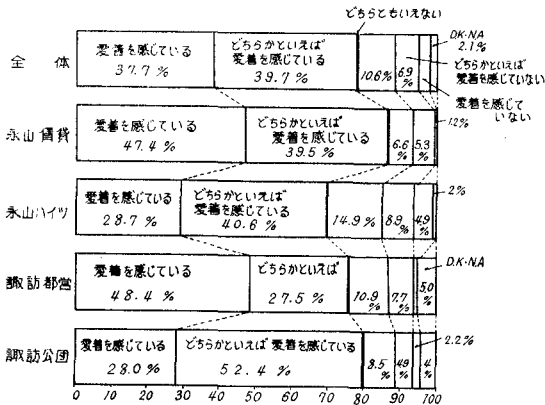 どちらともいえない
全体
愛着を感じている
37.7%
どちらかといえば
愛着を感じている
39.7%
10.6%
6.9
%
D.K・N.A
2.1%
どちらかといえば
愛着を感じていない
愛着を感じて
いない
永山賃貸
愛着を感じている
47.4%
どちらかといえば
愛着を感じている
39.5%
6.6
%
5.3
%
1.2%
永山ハイツ
愛着を感じている
28.7%
どちらかといえば
愛着を感じている
40.6%
14.9%
8.9
%
4.9
%
2%
諏訪都営
愛着を感じている
48.4%
どちらかといえば
27.5%
10.9
%
7.7
%
5.0
%
D.K・N.A
諏訪公団
愛着を感じている
28.0%
どちらかといえば愛着を感じている
52.4%
8.5
%
4.9
%
4
%
2.2%
0 10 20 30 40 50 60 70 80 90 100